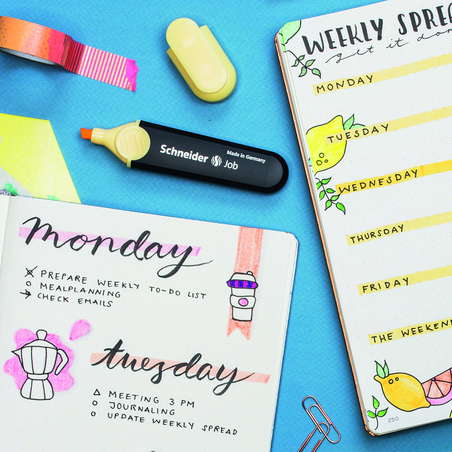 WEEKLY SPREA
get it don
MONDAY
TUESDAY
WEDNESDAY
THURSDAY
FRIDAY
THE WEEKEND
250
Schneider Job
Made in Germany
monday
PREPARE WEEKLY TO-DO LIST
MEALPLANNING
→ CHECK EMAILS
tuesday
MEETING 3 PM
JOURNALING
UPDATE WEEKLY SPREAD